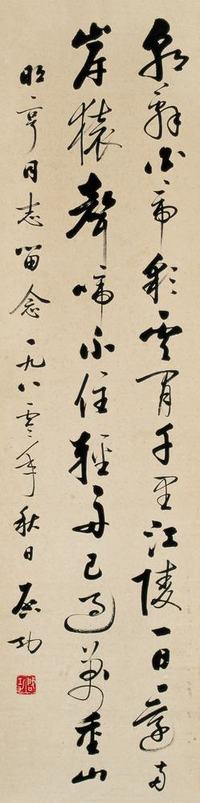 朝辭白帝彩雲間千里江陵一日還兩
岸猿聲啼不住輕舟已過萬重山
亨同志留念一九八零年秋日啟功